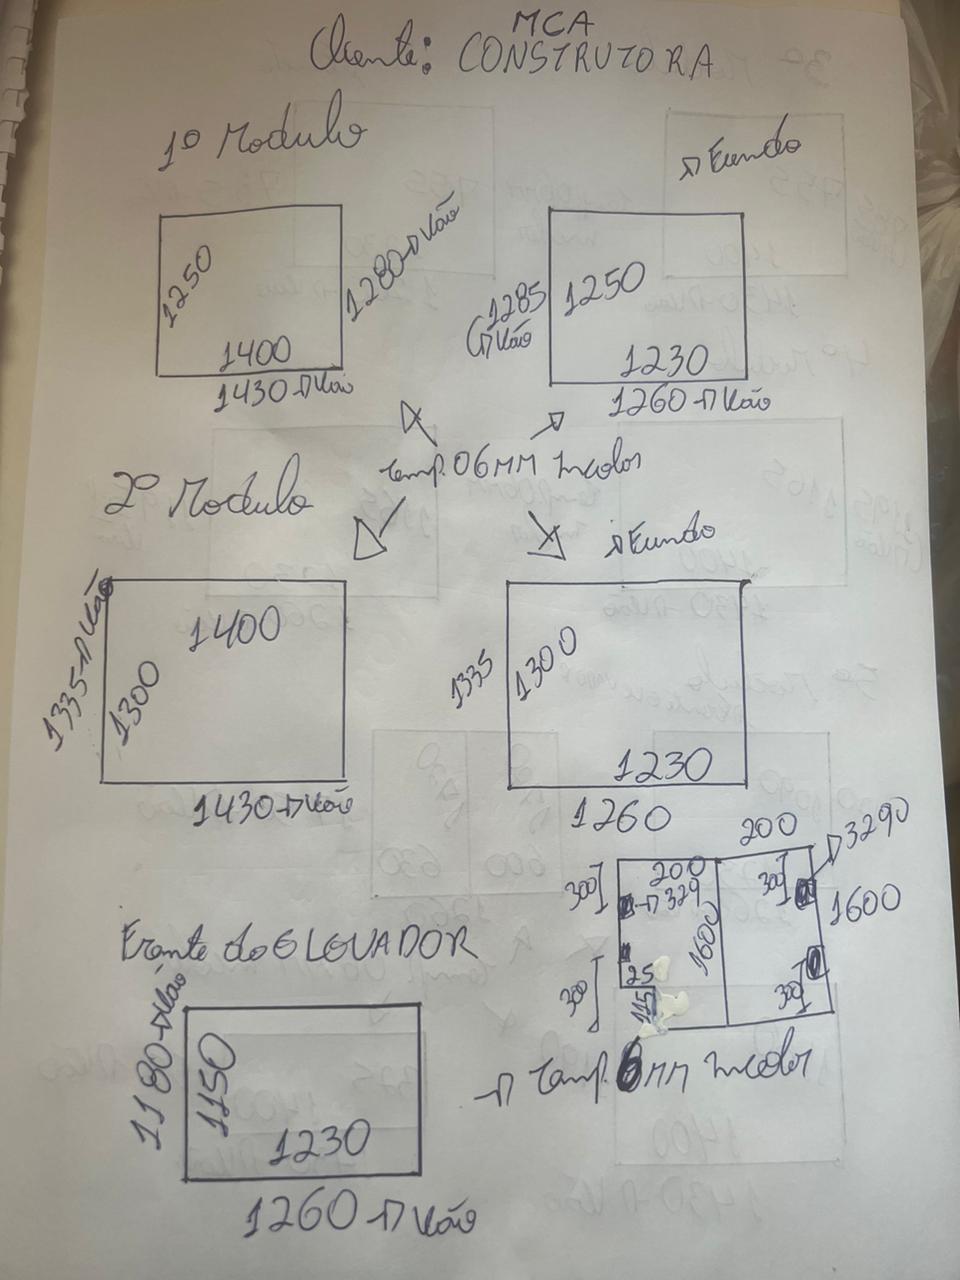 MCA
Cliente: CONSTRUTORA
1º Modulo
Fundo
1250
1280 Vão
1400
1430 Vão
1285
Vão
1250
1230
1260 Vão
Temp. 06MM Incolor
2º Modulo
Fundo
1335 Vão
1300
1400
1430 Vão
1335
1300
1230
1260
Frante do ELEVADOR
1180 Vão
1150
1230
1260 Vão
200
3290
300
200
329
300
1600
1600
300
25
115
300
Temp. 6MM Incolor